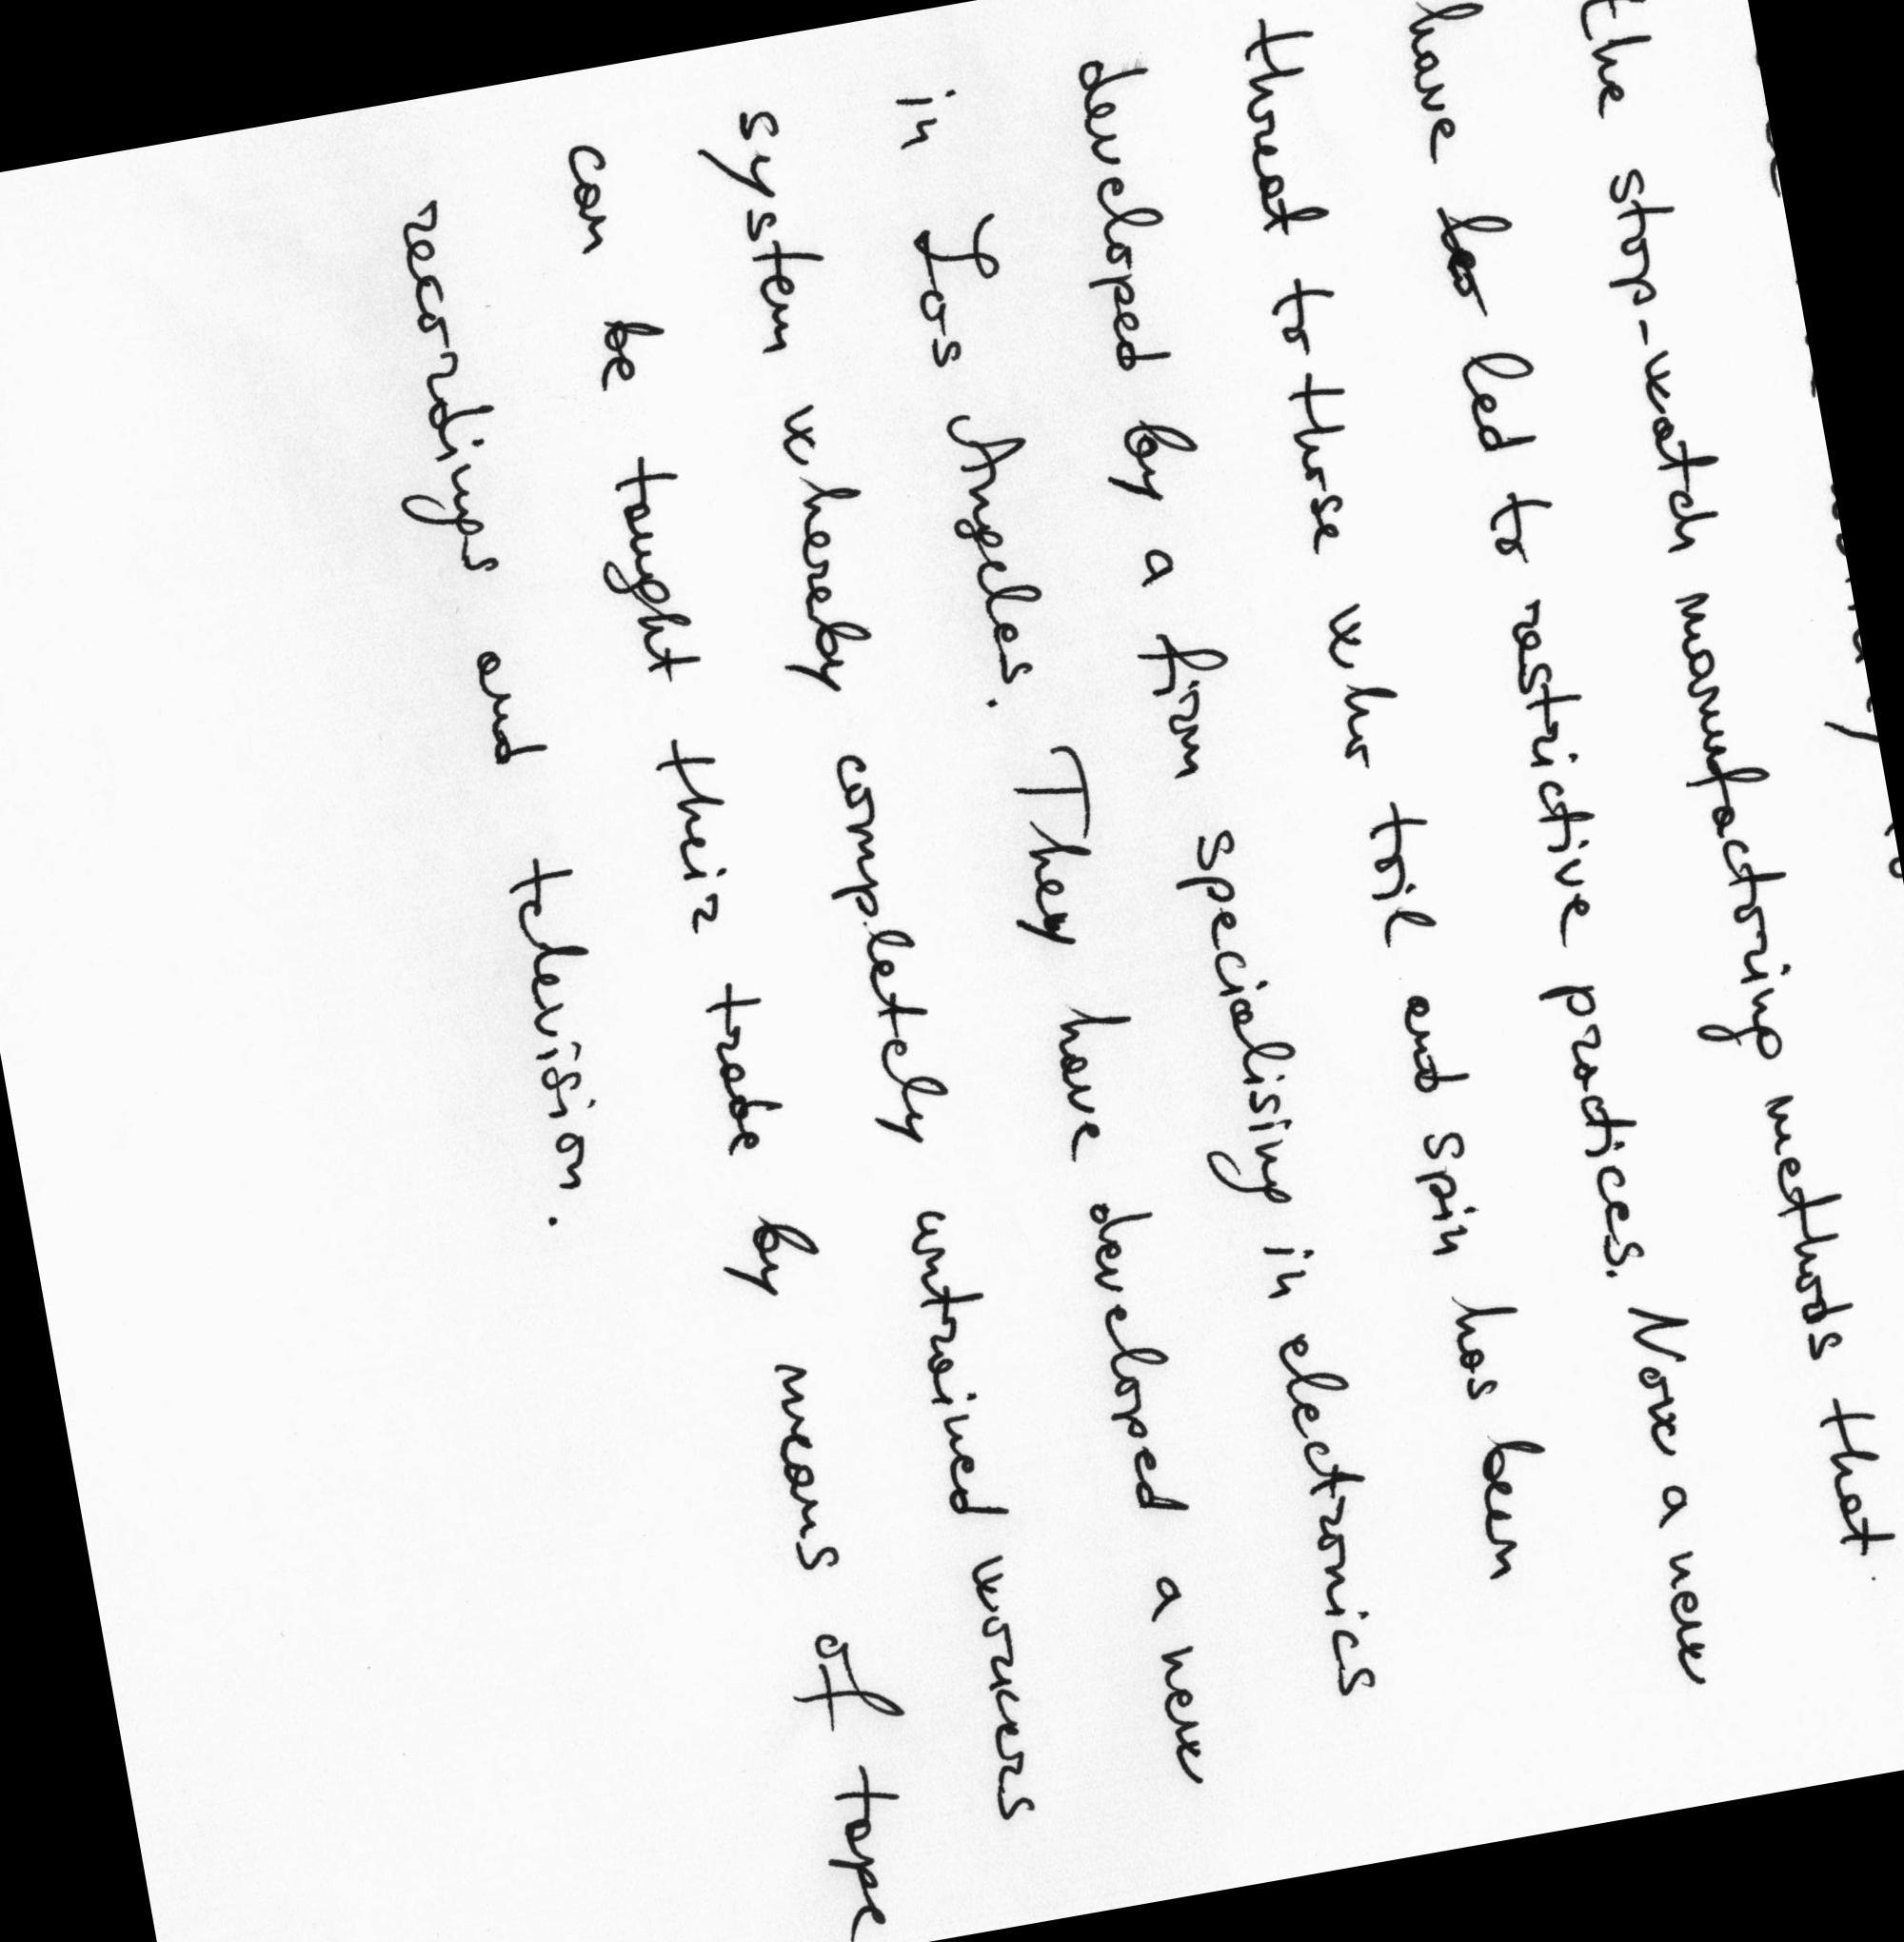 the stop-watch manufactoring methods that
have led to restrictive practices. Now a new
threat to those who toil and spin has been
developed by a firm specialising in electronics
in Los Angeles. They have developed a new
system whereby completely untrained workers
can be taught their trade by means of tape
recordings and television.